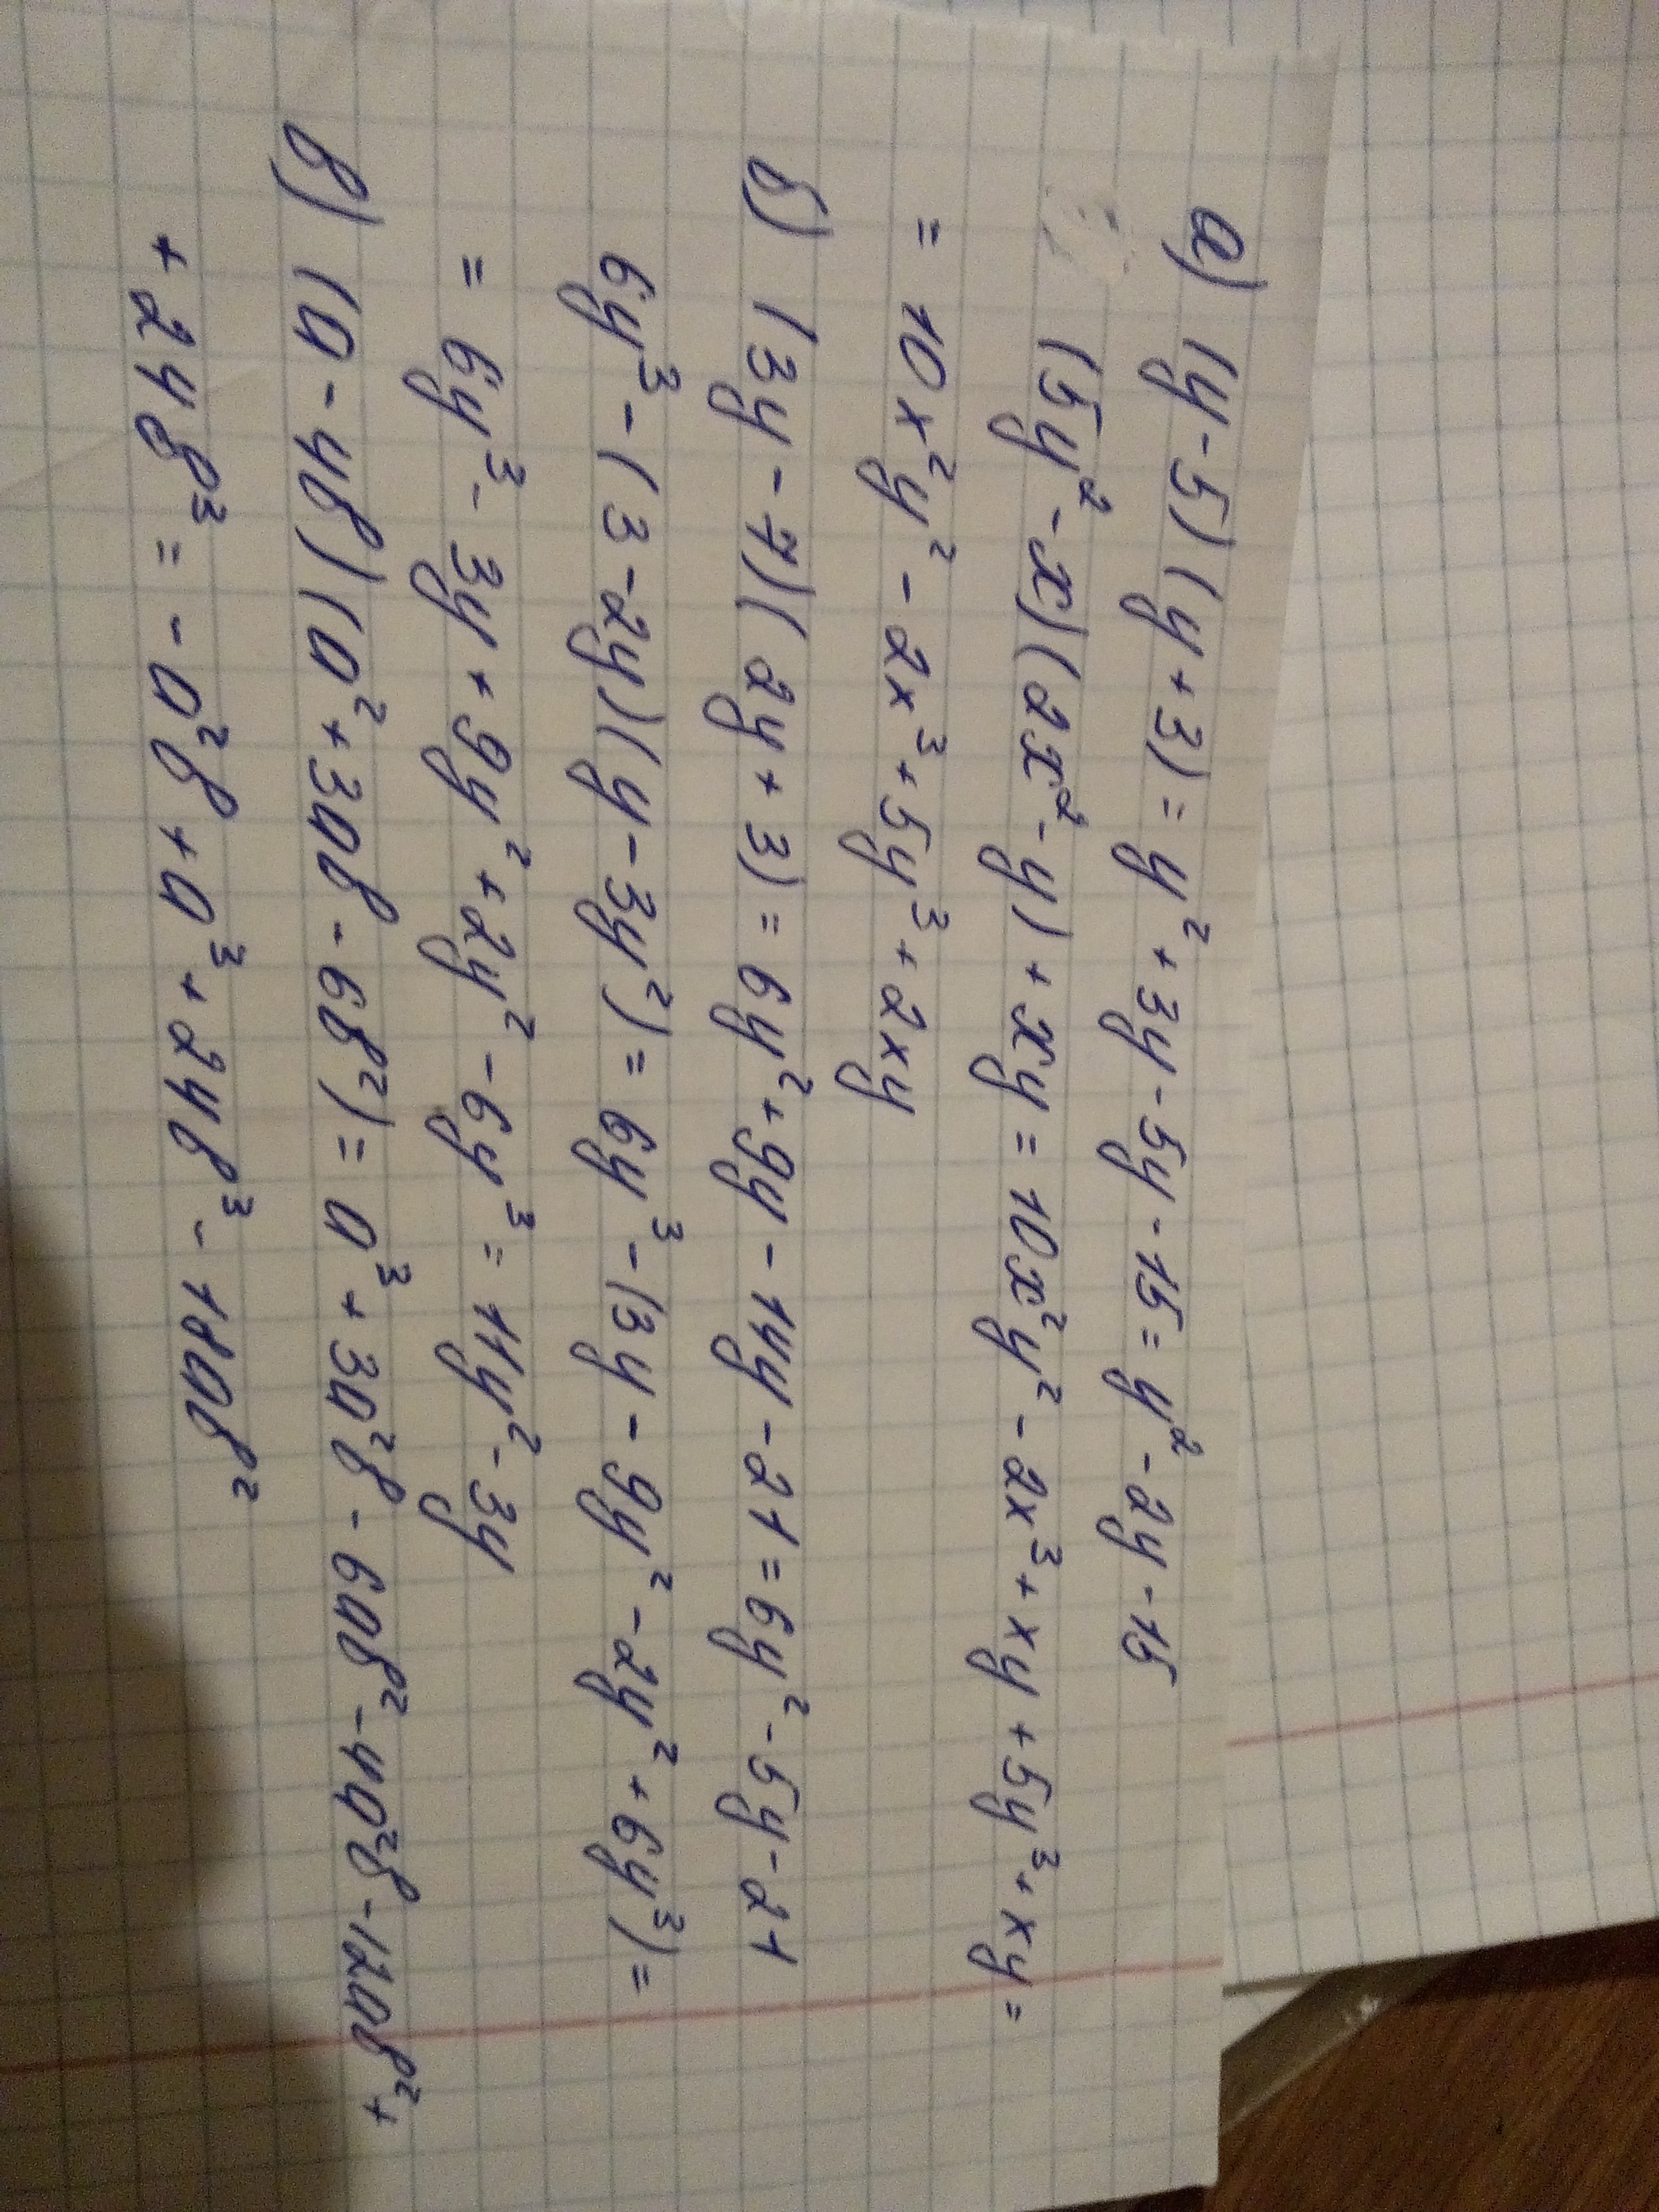 а) (y-5)(y+3)=y²+3y-5y-15=y²-2y-15
(5y²-x)(2x²-y)+xy=10x²y²-2x³+xy+5y³+xy=
=10x²y²-2x³+5y³+2xy
б) (3y-7)(2y+3)=6y²+9y-14y-21=6y²-5y-21
6y³-(3-2y)(y-3y²)=6y³-(3y-9y²-2y²+6y³)=
=6y³-3y+9y²+2y²-6y³=11y²-3y
в) (a-4b)(a²+3ab-6b²)=a³+3a²b-6ab²-4a²b-12ab²+
+24b³=-a²b+a³+24b³-18ab²